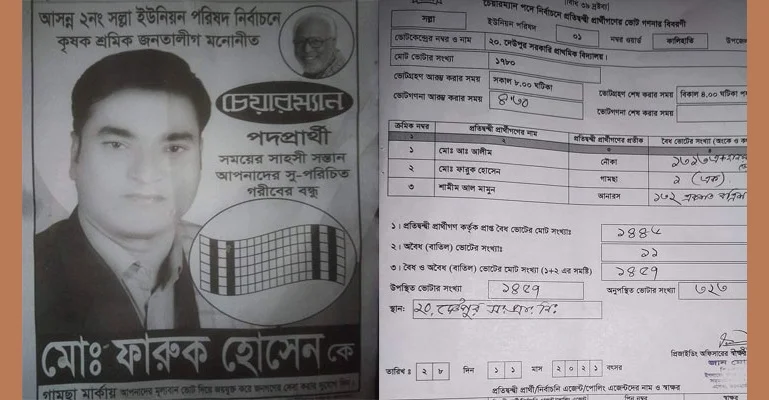 আসন্ন ২নং সল্লা ইউনিয়ন পরিষদ নির্বাচনে
কৃষক শ্রমিক জনতালীগ মনোনীত
চেয়ারম্যান
পদপ্রার্থী
সময়ের সাহসী সন্তান
আপনাদের সু-পরিচিত
গরীবের বন্ধু
মোঃ ফারুক হোসেন কে
গামছা মার্কায় আপনাদের মূল্যবান ভোট দিয়ে জয়যুক্ত করে জনগণের সেবা করার সুযোগ দিন।
চেয়ারম্যান পদে নির্বাচনে প্রতিদ্বন্দ্বী প্রার্থীগণের ভোট গণনার বিবরণী
সল্লা ইউনিয়ন পরিষদ ০১ নম্বর ওয়ার্ড কালিহাতি
ভোটকেন্দ্রের নম্বর ও নাম ২০, দেউপুর সরকারি প্রাথমিক বিদ্যালয়।
মোট ভোটার সংখ্যা ১৭৮০
ভোটগ্রহণ আরম্ভ করার সময় সকাল ৮.০০ ঘটিকা ভোটগ্রহণ শেষ করার সময় বিকাল ৪.০০ ঘটিকা
ভোটগণনা আরম্ভ করার সময় ভোটগণনা শেষ করার সময়
ক্রমিক নম্বর প্রতিদ্বন্দ্বী প্রার্থীগণের নাম প্রতিদ্বন্দ্বী প্রার্থীগণের প্রতীক বৈধ ভোটের সংখ্যা (অংকে ও
১ ২ ৩ ৪
১ মোঃ আঃ আলীম নৌকা
২ মোঃ ফারুক হোসেন গামছা ১ (এক)
৩ শামীম আল মামুন আনারস ১৩২
১। প্রতিদ্বন্দ্বী প্রার্থীগণ কর্তৃক প্রাপ্ত বৈধ ভোটের মোট সংখ্যাঃ
২। অবৈধ (বাতিল) ভোটের সংখ্যাঃ ১১
৩। বৈধ ও অবৈধ (বাতিল) ভোটের মোট সংখ্যা (১+২ এর সমষ্টি)
উপস্থিত ভোটার সংখ্যা অনুপস্থিত ভোটার সংখ্যা
স্থান: ২০, দেউপুর
প্রিজাইডিং অফিসারের
তারিখ ঃ ২ ৮ দিন ১ ১ মাস ২ ০ ২ ১ বৎসর
প্রতিদ্বন্দ্বী প্রার্থী/নির্বাচনি এজেন্ট/পোলিং এজেন্টদের নাম ও স্বাক্ষর